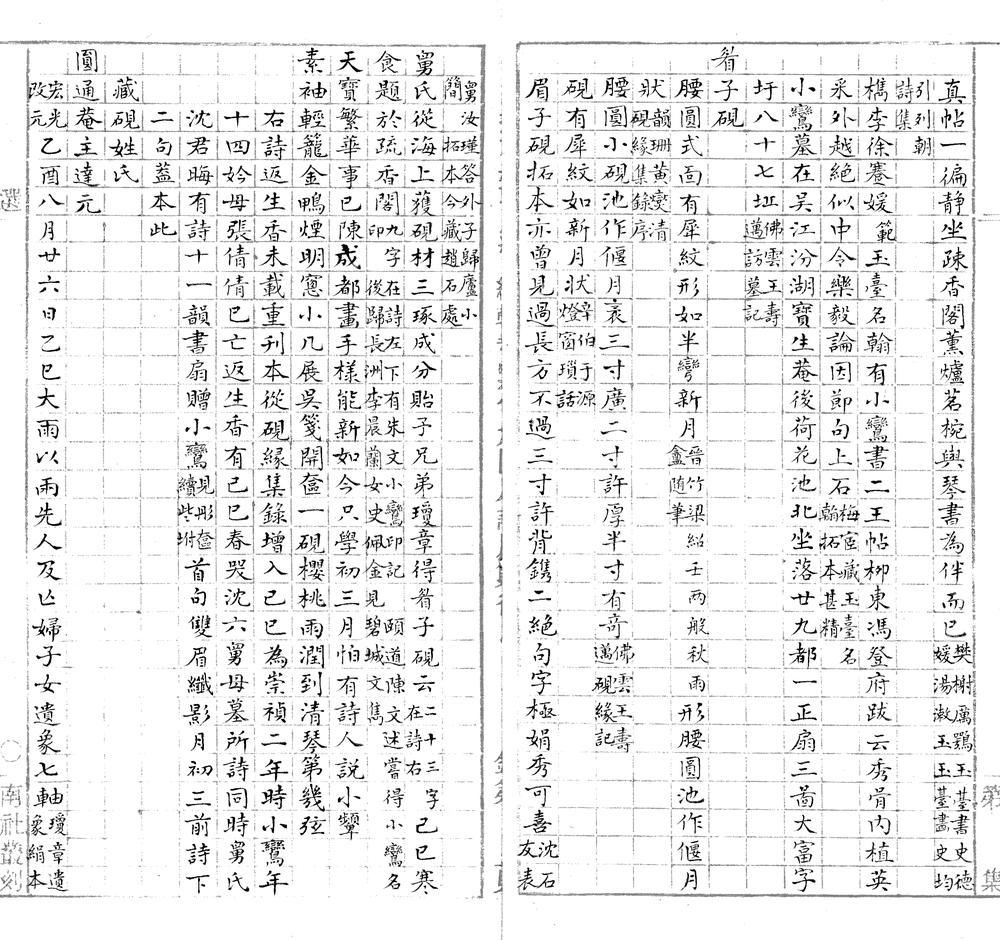 真帖一徧靜坐疎香閣薰爐茗椀與琴書為伴而已樊榭厲鶚玉臺書史德媛湯漱玉玉臺畫史均
引列朝詩集
檇李徐蹇媛範玉臺名翰有小鸞書二王帖柳東馮登府跋云秀骨內植英
采外越絕似中令樂毅論因節句上石梅宮藏玉臺名翰拓本甚精
小鸞墓在吳江汾湖寶生菴後荷花池北坐落廿九都一正扇三啚大富字
圩八十七坵佛雲王壽邁訪墓記
睂子硯
腰圓式面有犀紋形如半彎新月晉竹梁紹壬兩般秋雨盦随筆形腰圓池作偃月
狀韻珊黃燮清硯緣集錄序
腰圓小硯池作偃月袤三寸廣二寸許厚半寸有奇佛雲王壽邁硯緣記
硯有犀紋如新月狀辛伯于源燈窗瑣話
眉子硯拓本亦曾見過長方不過三寸許背鐫二絕句字極娟秀可喜沈石友表
舅汝瑾答外子歸廬小簡拓本今藏趙石處
舅氏從海上獲硯材三琢成分貽子兄弟瓊章得睂子硯云二十三字在詩右己巳寒
食題於疏香閣九字在詩左下有朱文小鸞印記頤道陳文述嘗得小鸞名印後歸長洲李晨蘭女史佩金見碧城文雋
天寶繁華事已陳成都畫手樣能新如今只學初三月怕有詩人說小顰
素袖輕籠金鴨煙明窻小几展吳箋開奩一硯櫻桃雨潤到清琴第幾弦
右詩返生香未載重刊本從硯緣集錄增入己巳為崇禎二年時小鸞年
十四妗母張倩倩已亡返生香有己巳春哭沈六舅母墓所詩同時舅氏
沈君晦有詩十一韻書扇贈小鸞見彤奩續些坿首句雙眉纖影月初三前詩下
二句蓋本此
藏硯姓氏
圓通菴主達元
宏光改元乙酉八月廿六日乙巳大雨以雨先人及亾婦子女遺象七軸瓊章遺象絹本
南社叢刻